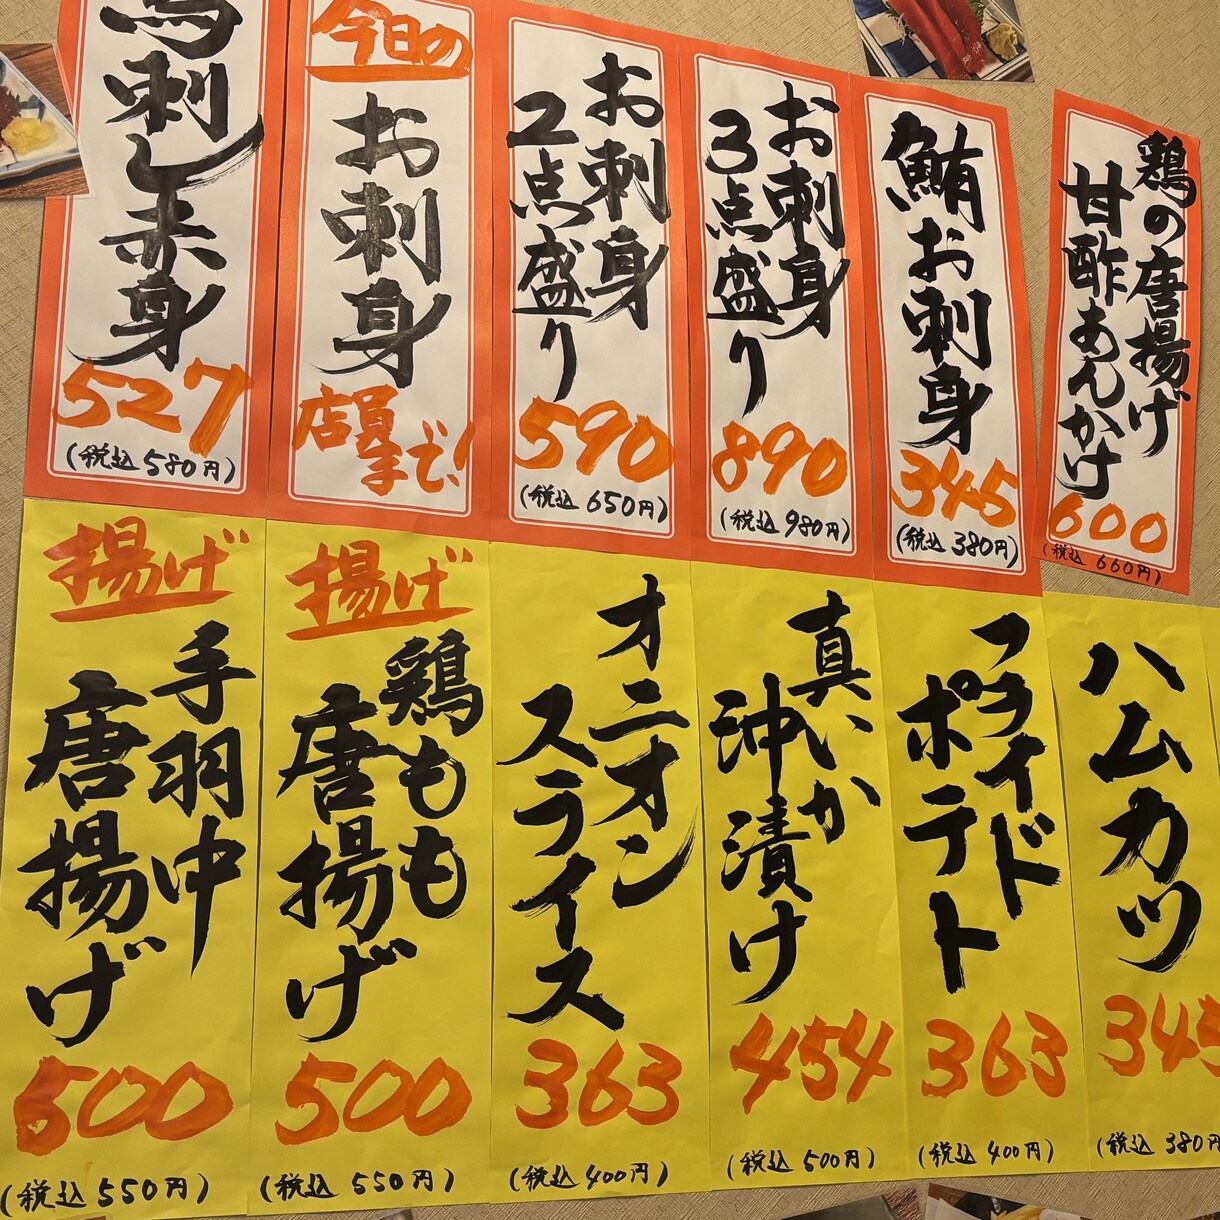 馬刺し赤身
527
(税込580円)
今日の
お刺身
店員
まで!
お刺身
2点盛り
590
(税込650円)
お刺身
3点盛り
890
(税込980円)
鮪お刺身
345
(税込380円)
鶏の唐揚げ
甘酢あんかけ
600
(税込660円)
揚げ
手羽中
唐揚げ
500
(税込550円)
揚げ
鶏もも
唐揚げ
500
(税込550円)
オニオン
スライス
363
(税込400円)
真いか
沖漬け
454
(税込500円)
フライド
ポテト
363
(税込400円)
ハムカツ
345
(税込380円